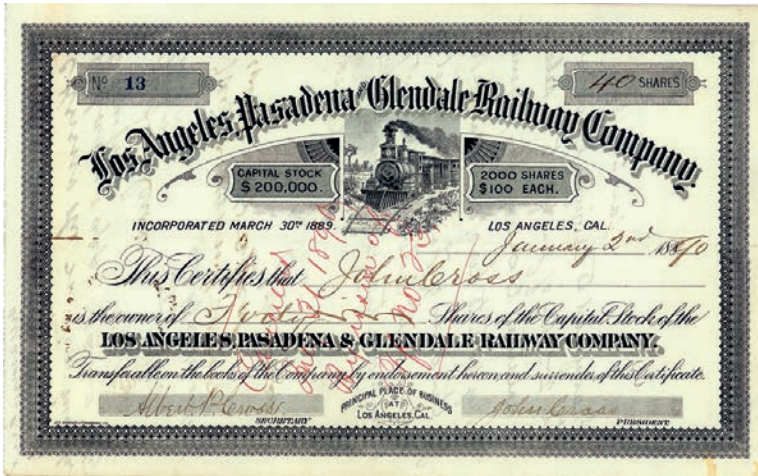 No 13
40 SHARES
Los Angeles, Pasadena and Glendale Railway Company.
CAPITAL STOCK
$ 200,000.
2000 SHARES
$100 EACH.
INCORPORATED MARCH 30TH 1889.
LOS ANGELES, CAL.
January 2nd 1890
This Certifies that John Cross
is the owner of Forty Shares of the Capital Stock of the
LOS ANGELES, PASADENA & GLENDALE RAILWAY COMPANY.
Transferable on the books of the Company by endorsement hereon and surrender of this Certificate.
Albert P. Cross
SECRETARY
PRINCIPAL PLACE OF BUSINESS
AT
LOS ANGELES, CAL.
John Cross
PRESIDENT